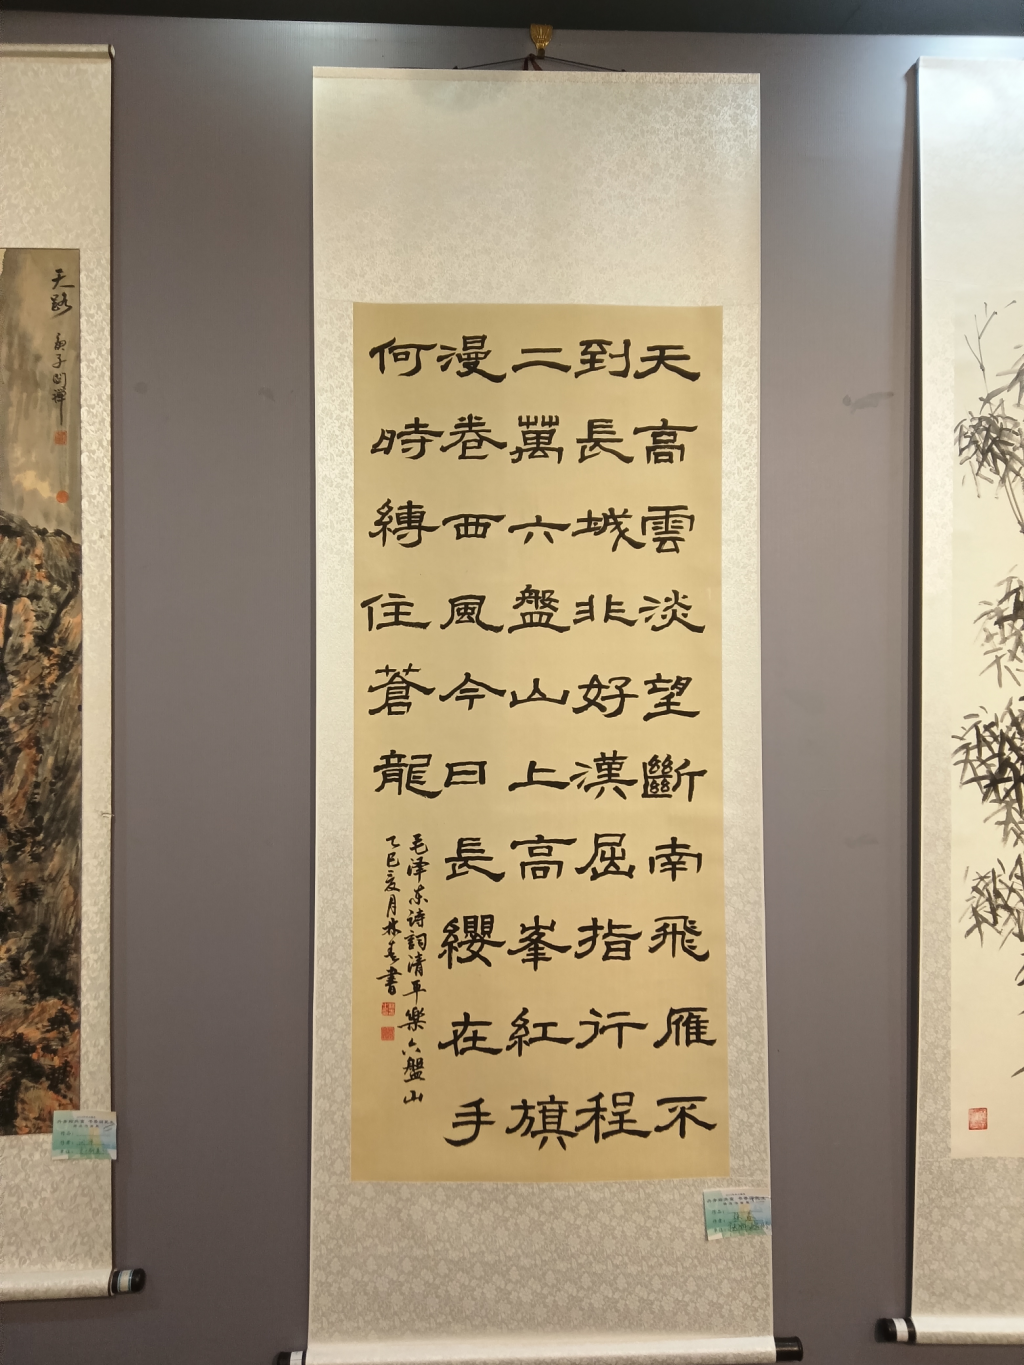 天高雲淡望斷南飛雁不
到長城非好漢屈指行程
二萬六盤山上高峯紅旗
漫卷西風今日長纓在手
何時縛住蒼龍
毛泽东诗詞清平樂六盤山
乙巳夏月林書
天路